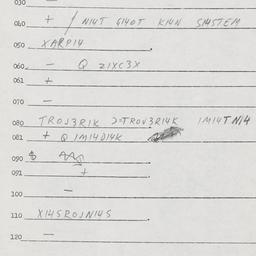 030
040 + / NI4T GI40T KI4N SI4STEM
050 XARPI4
060 — Q ZIXC3X
061 +
070 —
080 TROJ3RIK >=TROV3RI4K IMI4TNI4
081 + Q IMI4DI4K
090 $
091 +
100 —
110 XI4SROJNI4S
120 —